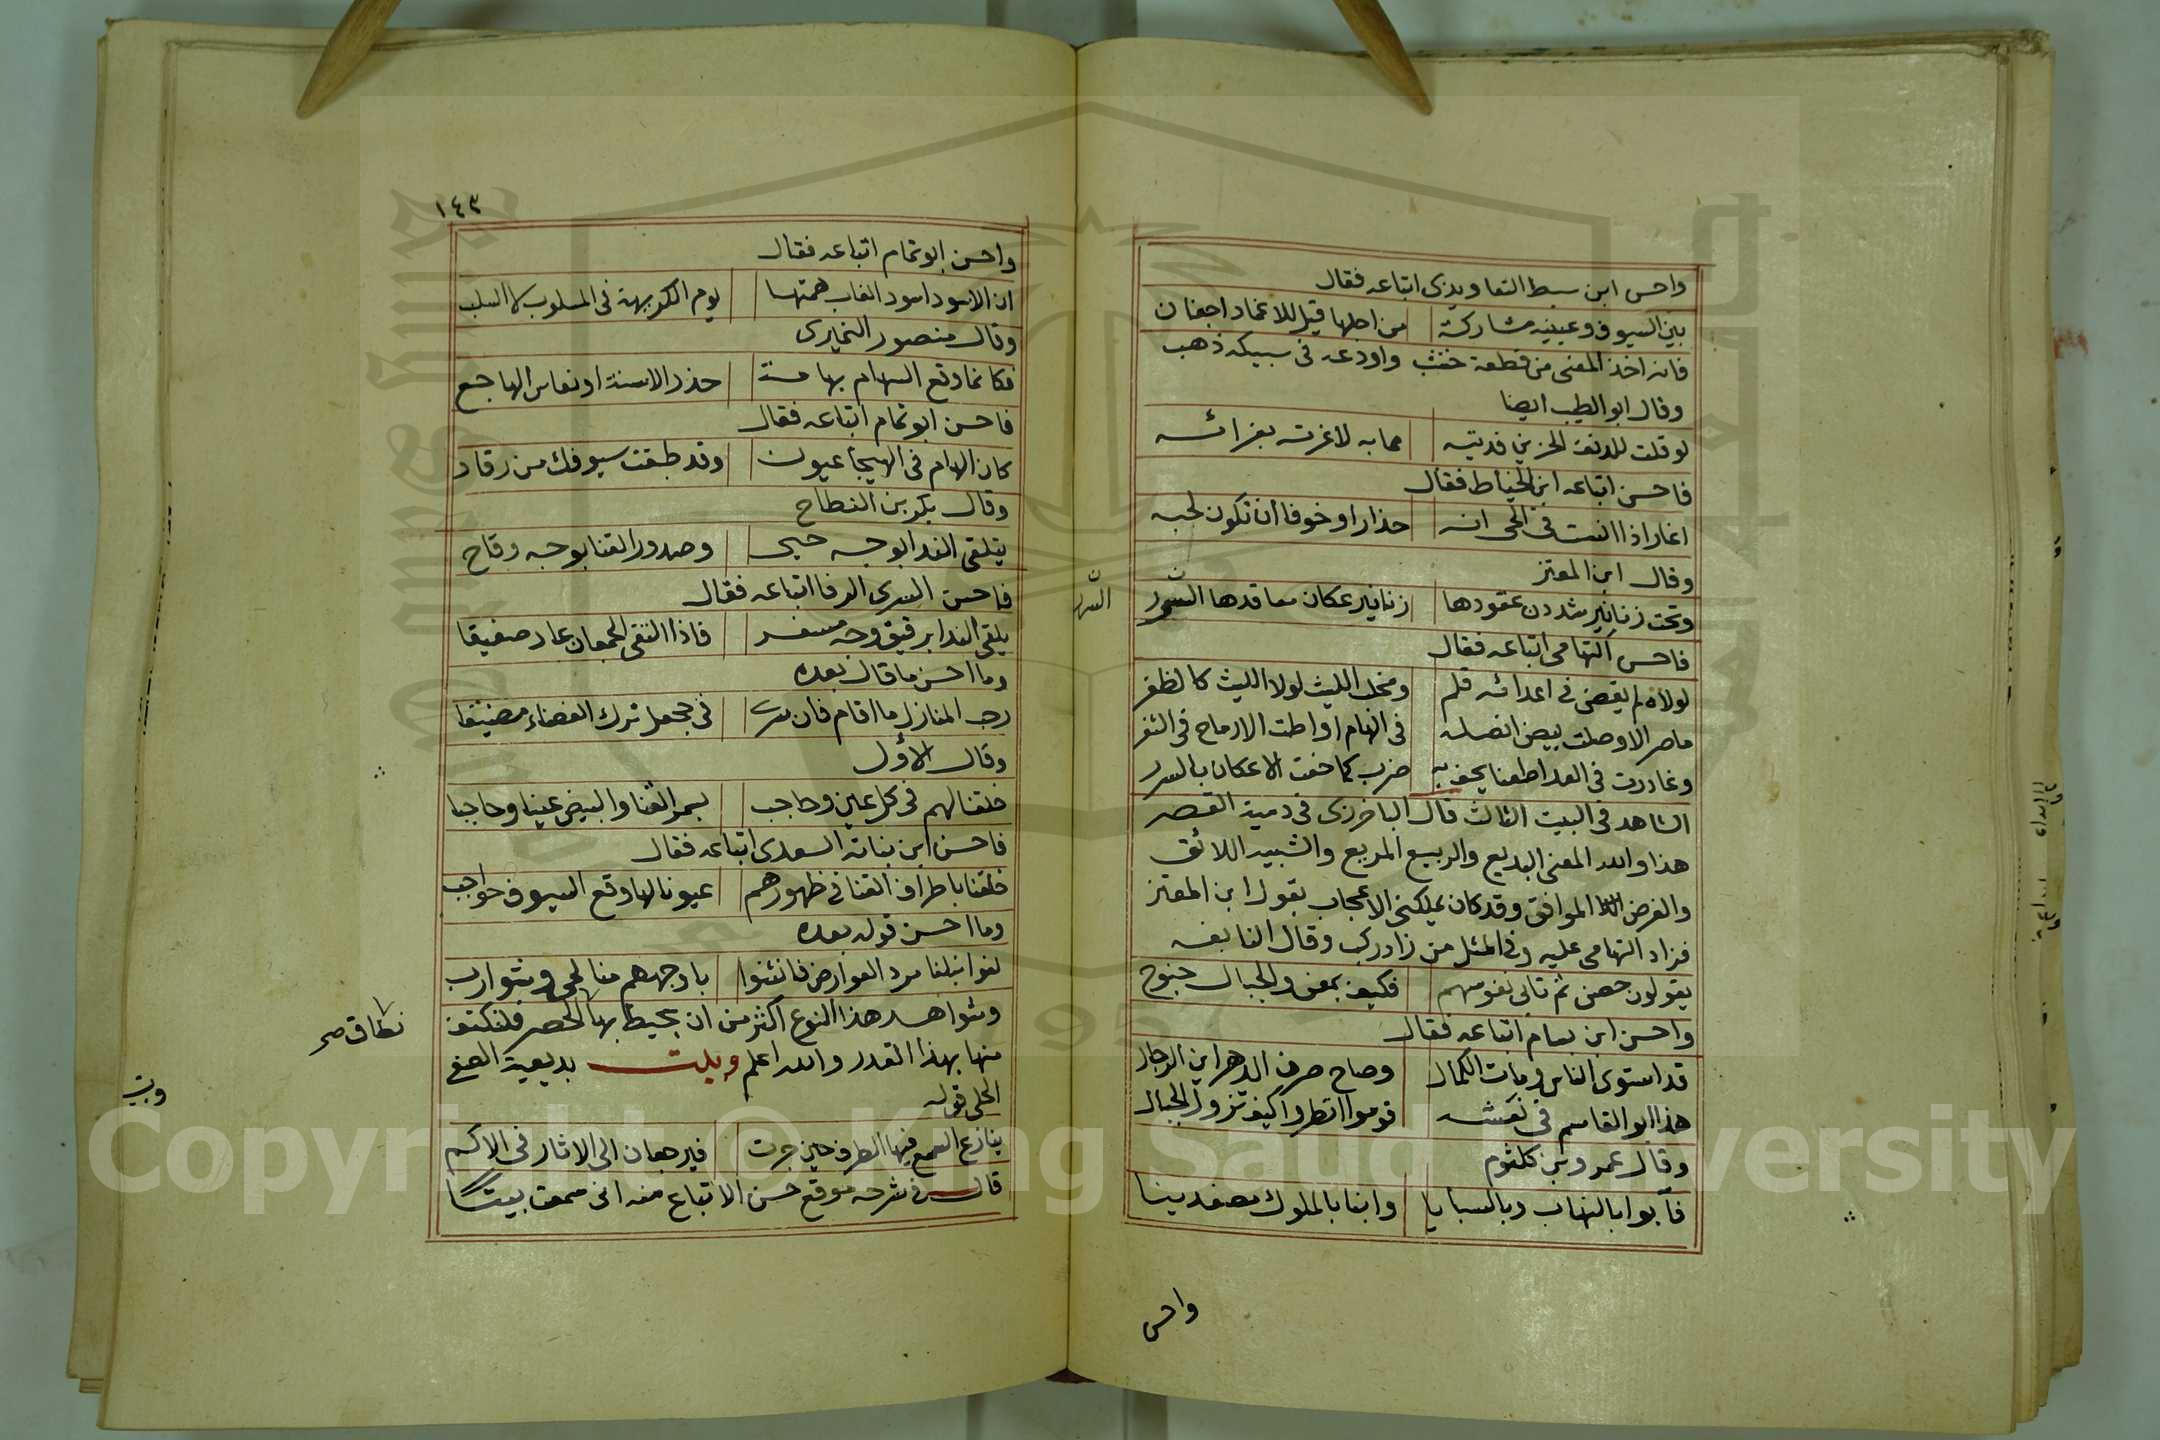 واحسن ابن سبط التعاويذى اتباعه فقال
بين السيوف وعينيه مشاركة من اجلها قيل للاغماد اجفان
فانه اخذ المعنى من قطعة خشب واودعه فى سبيكه ذهب
وقال ابو الطيب ايضا
لو قلت للدنف الحزين فديته مما به لاغرته بفدائه
فاحسن اتباعه ابن الخياط فقال
اغار اذا انست فى الحى انه حذارا وخوفا ان تكون لحبه
وقال ابن المعتز
وتحت زنانير شددن عقودها زنانير عكان معاقدها السرر
السرر
فاحسن التهامى اتباعه فقال
لولاه لم يقض فى اعدائه قلم ومخلب الليث لولا الليث كالظفر
ما صر الا وصلت بيض انصله فى الهام او اطت الارماح فى الثغر
وغادرت فى العدا طعنا يحف به ضرب كما حفت الاعكان بالسرر
الشاهد فى البيت الثالث قال الباخرزى فى دمية القصر
هذا والله المعنى البديع والربيع المريع والشبيه اللائق
والغرض الموافق وقد كان يملكنى الاعجاب بقول ابن المعتز
فزاد التهامى عليه وفى المثل من زاد ركب وقال النابغه
يقولون حصن ثم تابى نفوسهم فكيف بحصن والجبال جنوح
واحسن ابن بسام اتباعه فقال
قد استوى الناس ومات الكمال وصاح صرف الدهر اين الرجال
هذا ابو القاسم فى نعشه قوموا انظروا كيف تزول الجبال
وقال عمرو بن كلثوم
فآبوا بالنهاب وبالسبايا وابنا بالملوك مصفدينا
واحسن
١٤٣
واحسن ابو تمام اتباعه فقال
ان الاسود اسود الغاب همتها يوم الكريهة فى المسلوب لا السلب
وقال منصور النميرى
فكانما وقع السهام بهامه حذر الاسنة او نعاس الهاجع
فاحسن ابو تمام اتباعه فقال
كان الهام فى الهيجا عيون وقد طبقت سيوفك من رقاد
وقال بكر بن النطاح
يتلقى الندا بوجه حيى وصدور القنا بوجه وقاح
فاحسن السرى الرفا اتباعه فقال
يلقى الندا برقيق وجه مسفر فاذا التقى الجمعان عاد صفيقا
وما احسن ما قال بعده
رحب المنازل ما اقام فان سرى فى جحفل ترك الفضاء مضيقا
وقال الاول
خلقنا لهم فى كل عين وحاجب بسمر القنا والبيض عينا وحاجبا
فاحسن ابن نباته السعدى اتباعه فقال
خلقنا باطراف القنا فى ظهورهم عيونا لها وقع السيوف حواجب
وما احسن قوله بعده
لقوا نبلنا مرد العوارض فانثنوا باوجههم منا لحى وشوارب
وشواهد هذا النوع اكثر من ان يحيط بها الحصر فلنكتف
نطاق صح
منها بهذا القدر والله اعلم وبيت بديعية الصفى
الحلى قوله
ينازع السمع فيها الطرف حين جرت فيرجعان الى الاثار فى الاكم
قال فى شرحه موقع حسن الاتباع منه انى سمعت بيتا
وبيت
Copyright © King Saud University